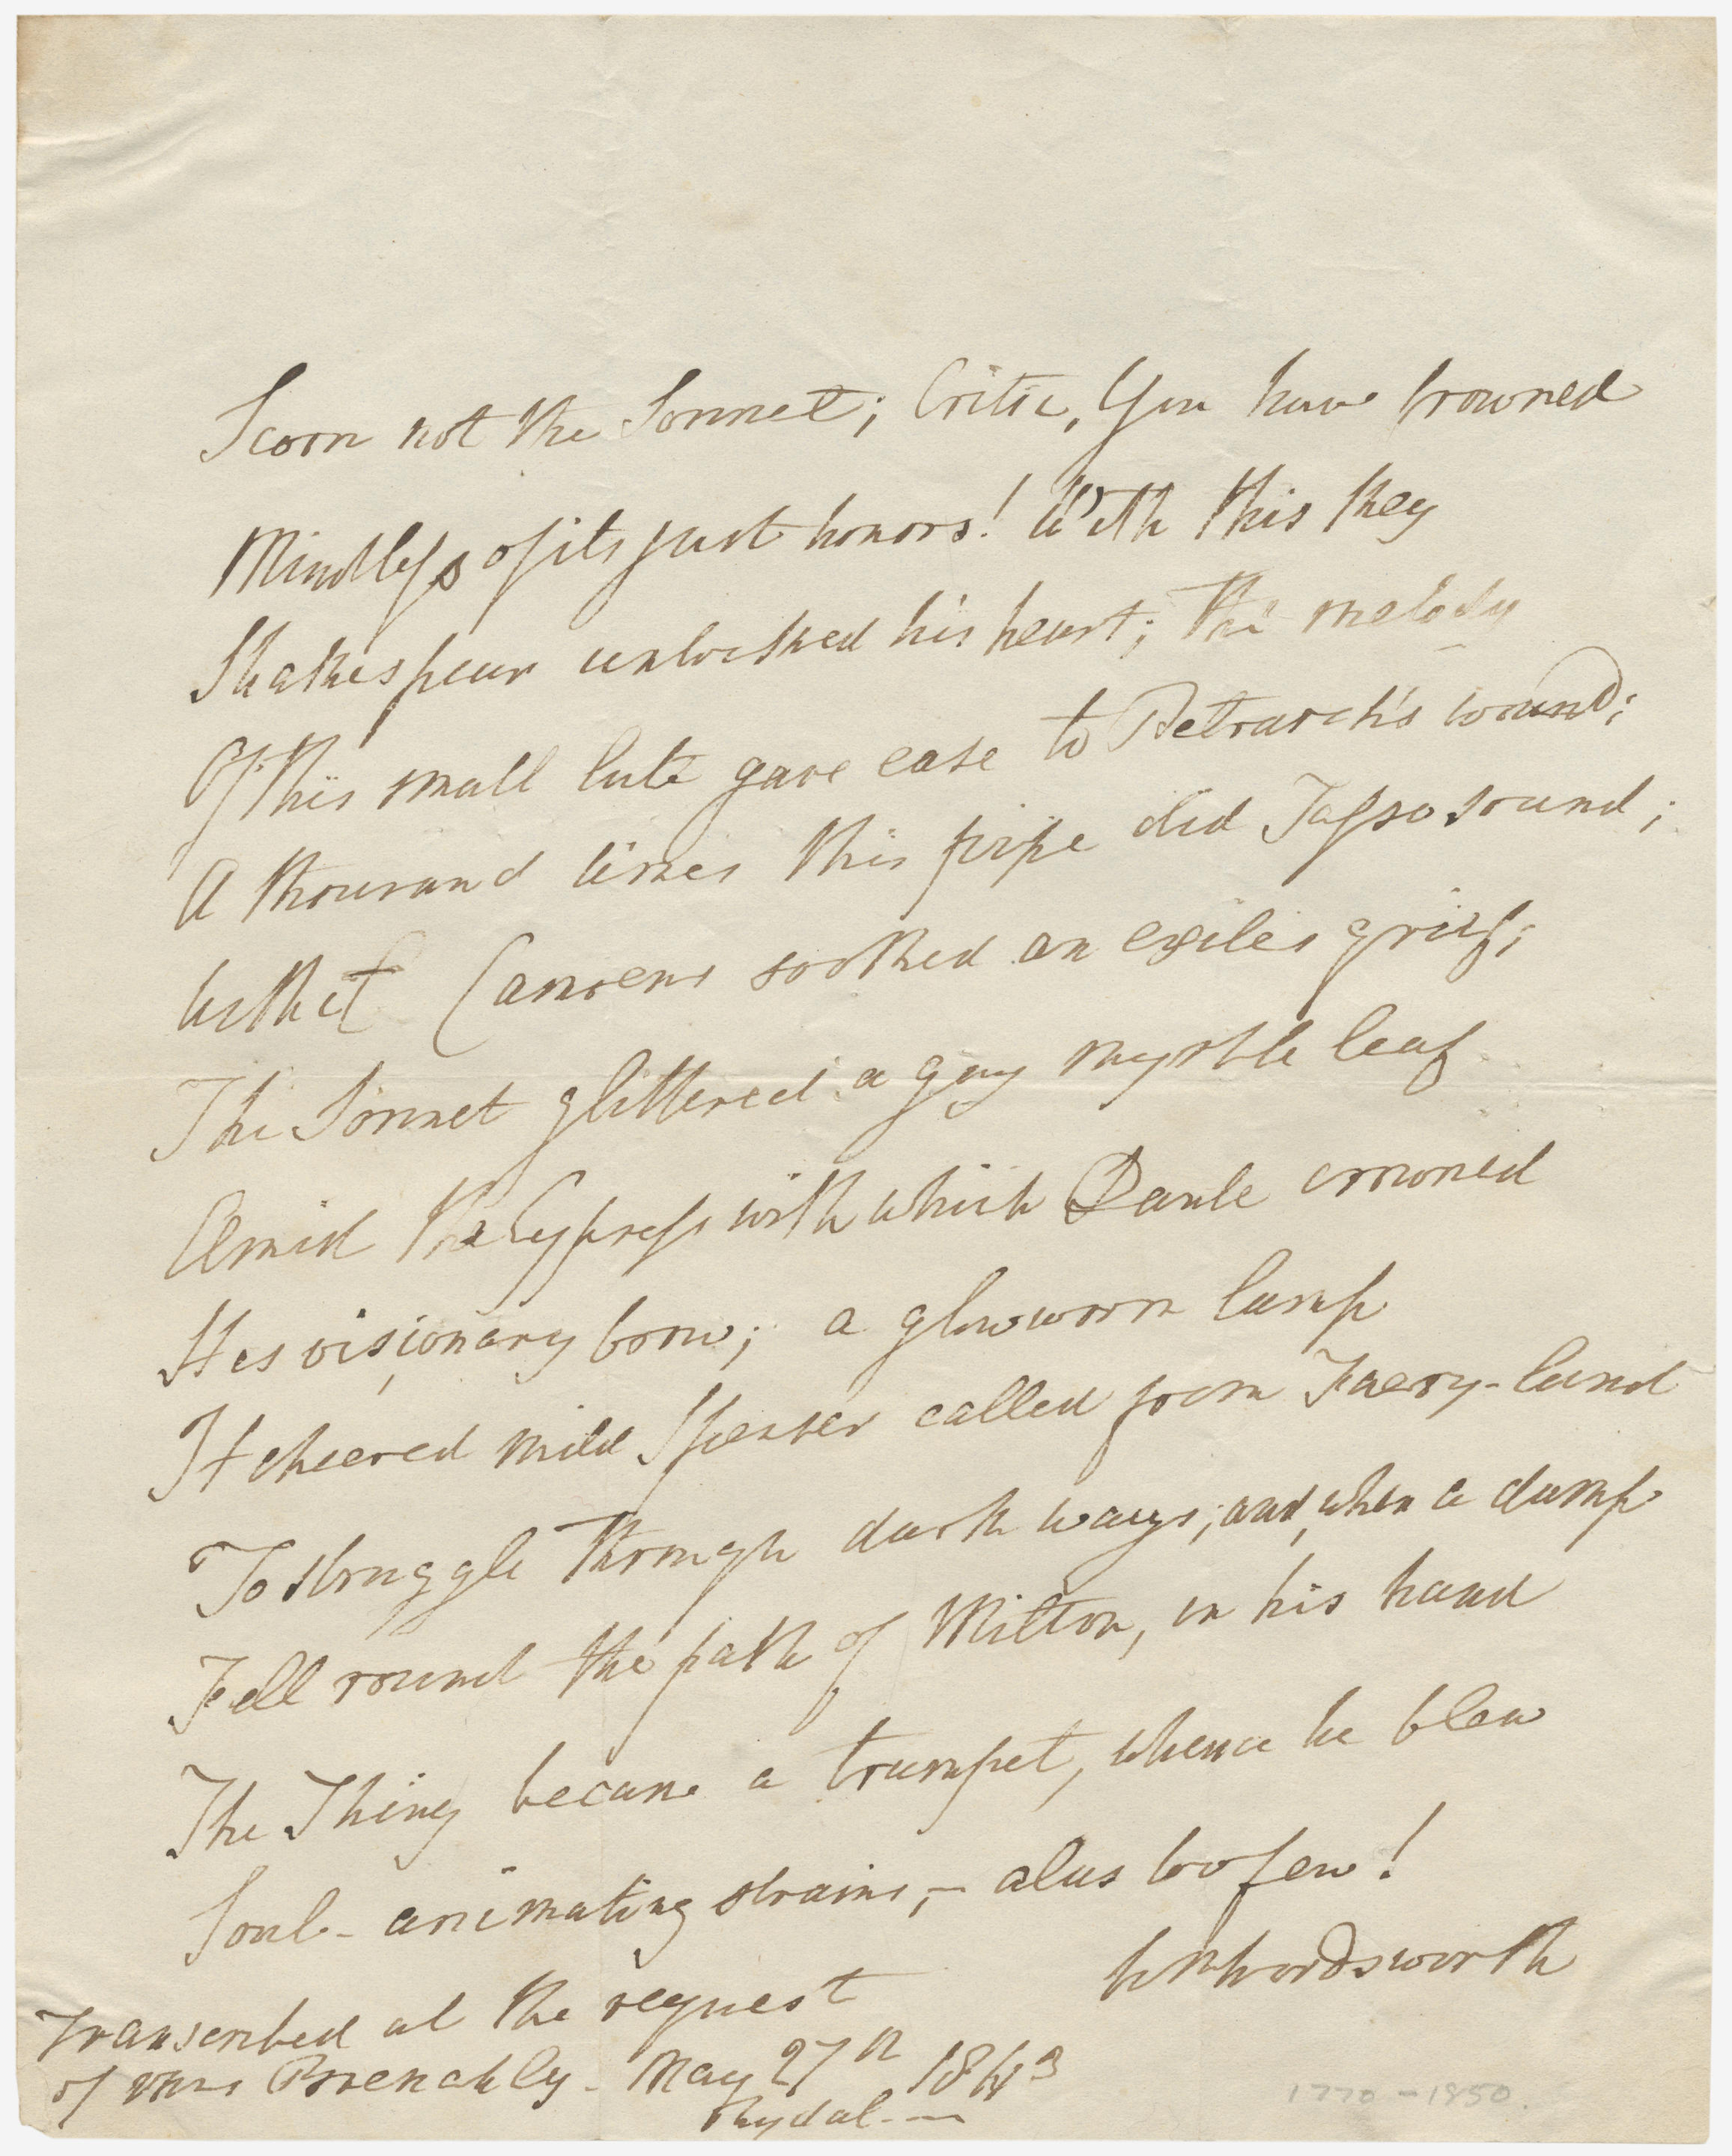 Scorn not the Sonnet; Critic, You have frowned
Mindless of its just honors! With this key
Shakespear unlocked his heart; the melody
Of this small lute gave ease to Petrarch's wound;
A thousand times this pipe did Tasso sound;
With it Camoens soothed an exiles grief;
The Sonnet glittered a gay myrtle leaf
Amid the Cypress with which Dante crowned
His visionary brow; a glow worm lamp
It cheered mild Spenser called from Faery-land
To struggle through dark ways; and, when a damp
Fell round the path of Milton, in his hand
The Thing became a trumpet, whence he blew
Soul-animating strains,— alas too few!
Wm Wordsworth
Transcribed at the request
of Mrs . May 27th 1843
Rydal.—
1770-1850.